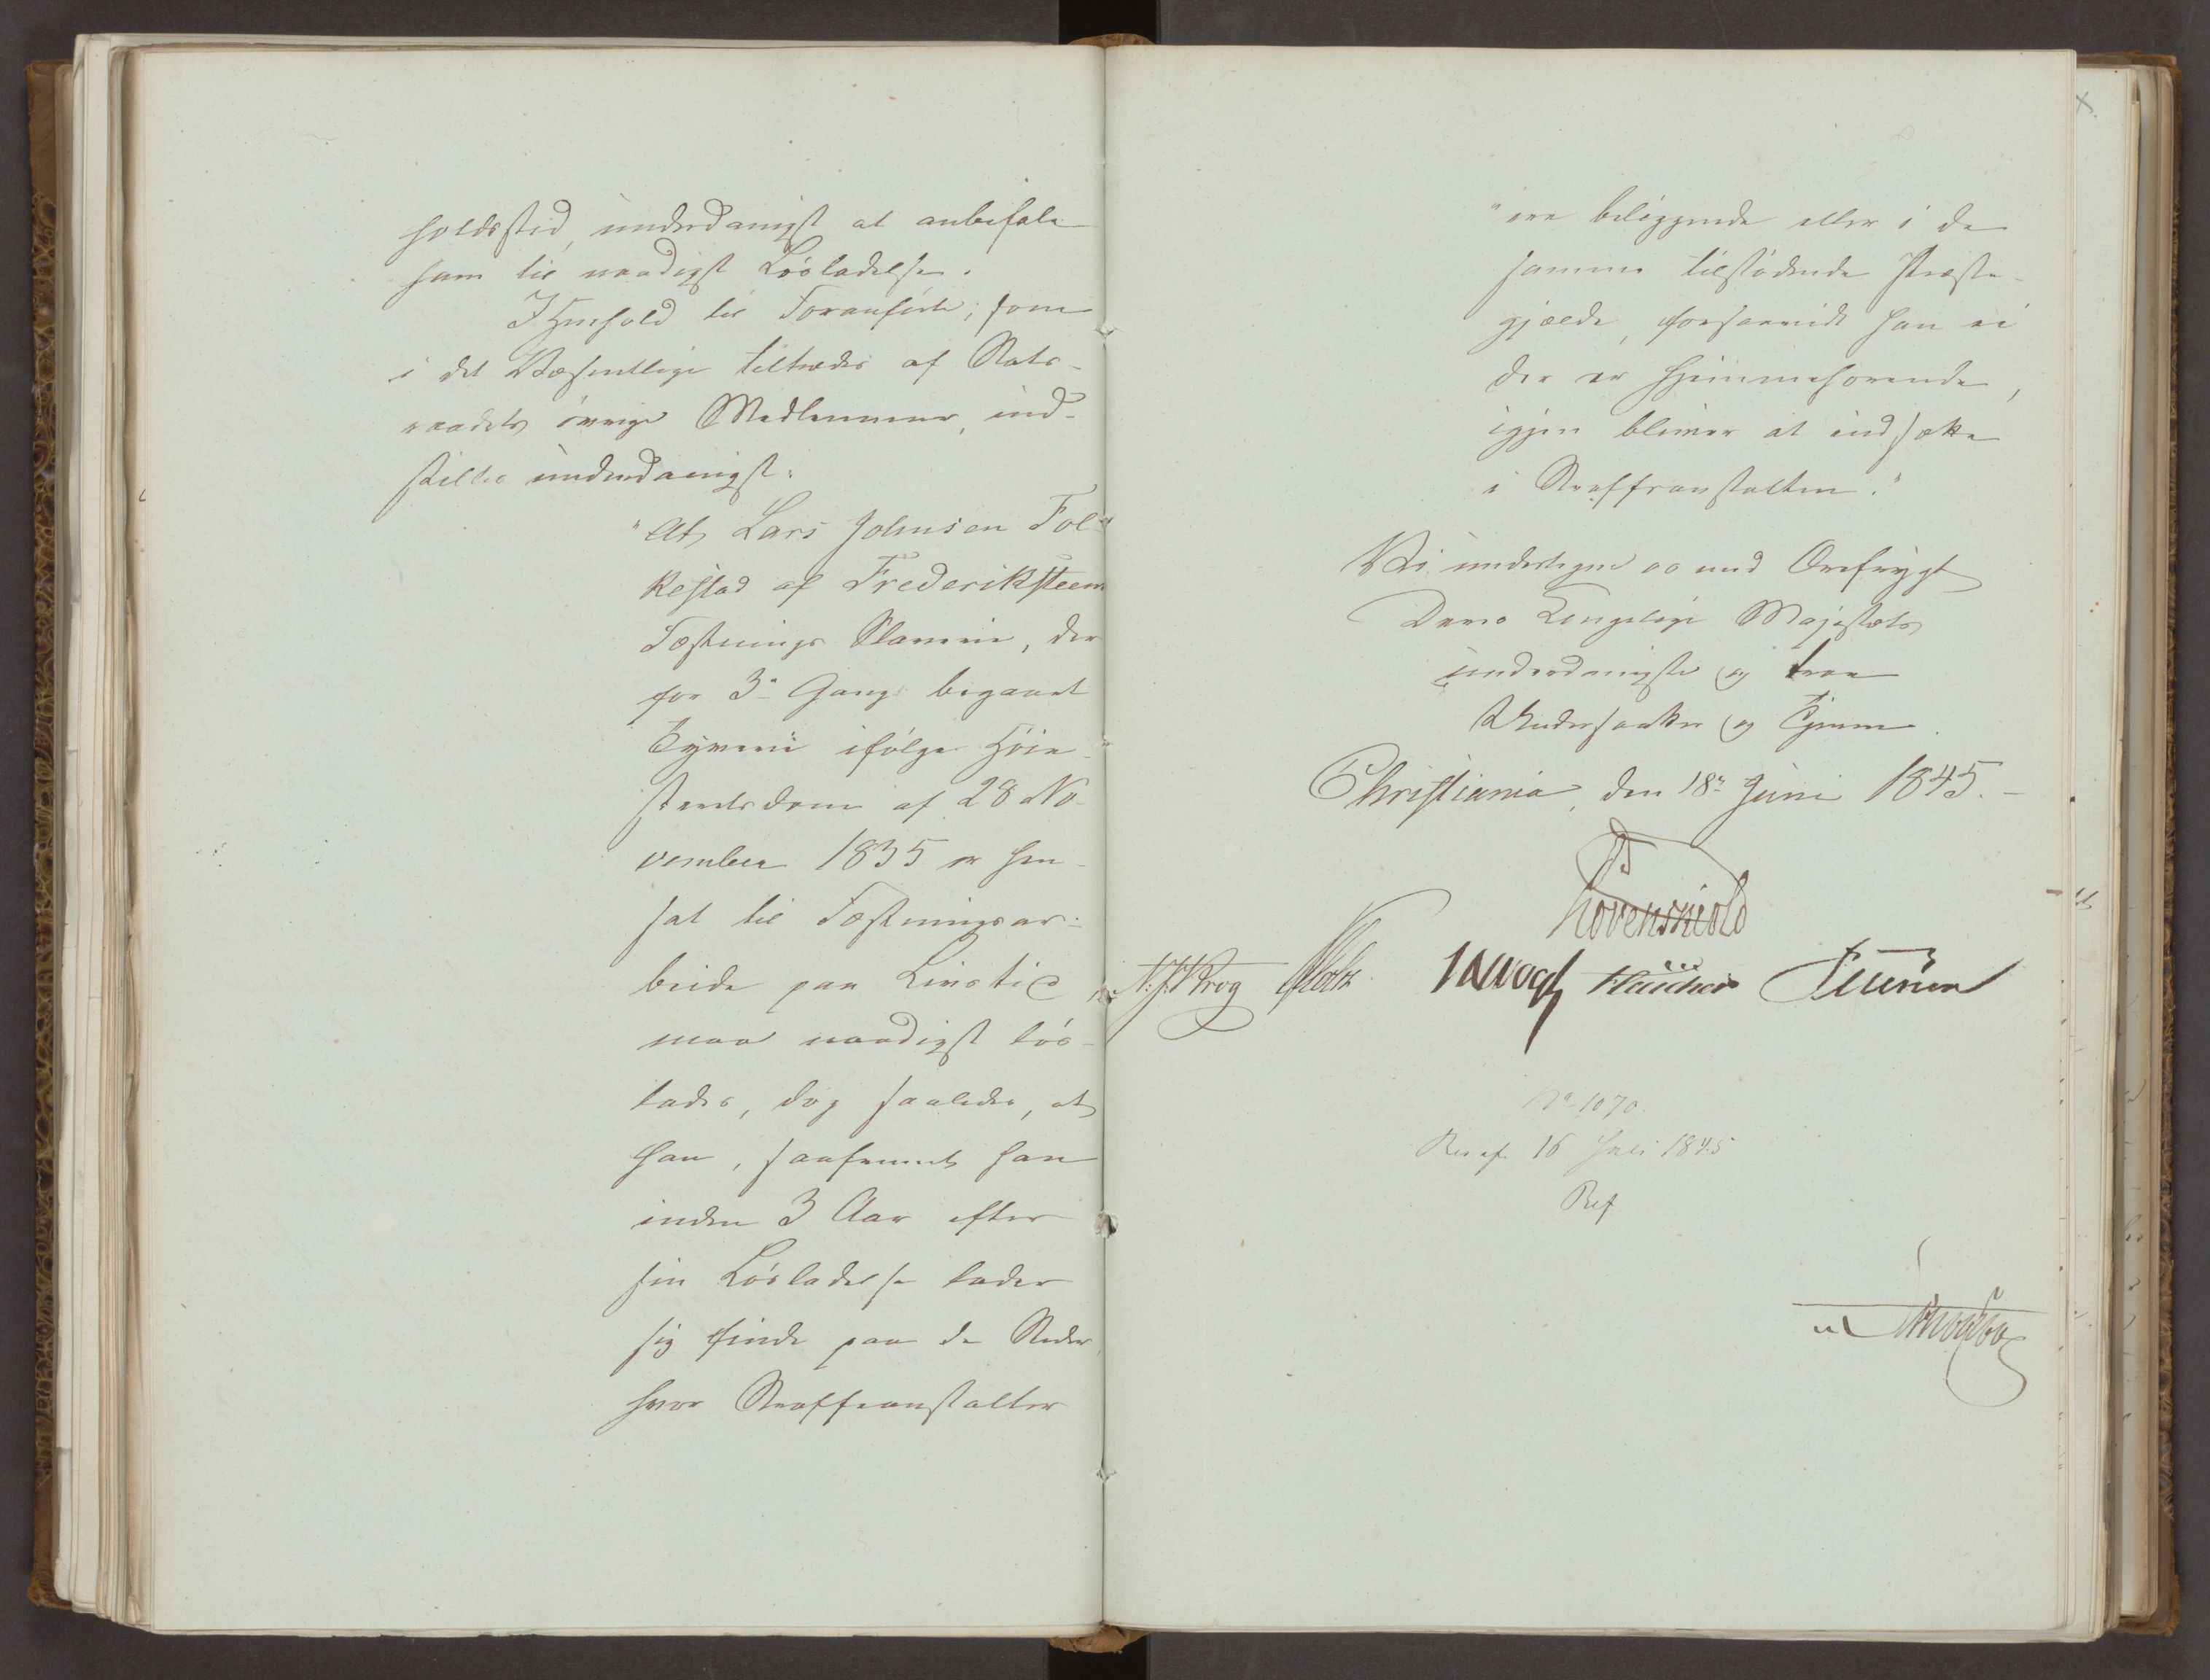 holdssted, underdanigst at anbefale
ham til naadigst Løsladelse.
I Henhold til Foranførte, som
i det Væsentlige tiltrædes af Stats-
raadets øvrige Medlemmer, ind-
stilles underdanigst:
"At Lars Johnsen Fol-
kestad af Frederiksteens
Fæstnings Slaverie, der
for 3die Gang begaaet
Tyverie ifølge Høie-
steretsdom af 28 No-
vember 1835 er hen-
sat til Fæstningsar-
beide paa Livstid,
maa naadigst løs-
lades, dog saaledes, at
han, saafremt han
inden 3 Aar efter
sin Løsladelse lader
sig finde paa de Steder,
hvor Straffeanstalter
"ere beliggende eller i de
samme tilstødende Præste-
gjælde, forsaavidt han ei
der er hjemmehørende,
igjen bliver at indsætte
i Straffeanstalten."
Vi undertegne os med Ærefrygt
Deres Kongelige Majestæts
underdanigste og troe
Undersaatter og Tjenere.
Christiania, den 18de Juni 1845.
Løvenskiold
N: J: Krog Holst Vogt Petersen
No 1070
Res af 16 Juli 1845
Ref